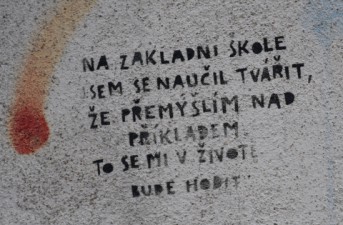 NA ZÁKLADNÍ ŠKOLE
JSEM SE NAUČIL TVÁŘIT,
ŽE PŘEMÝŠLÍM NAD
PŘÍKLADEM.
TO SE MI V ŽIVOTĚ
BUDE HODIT